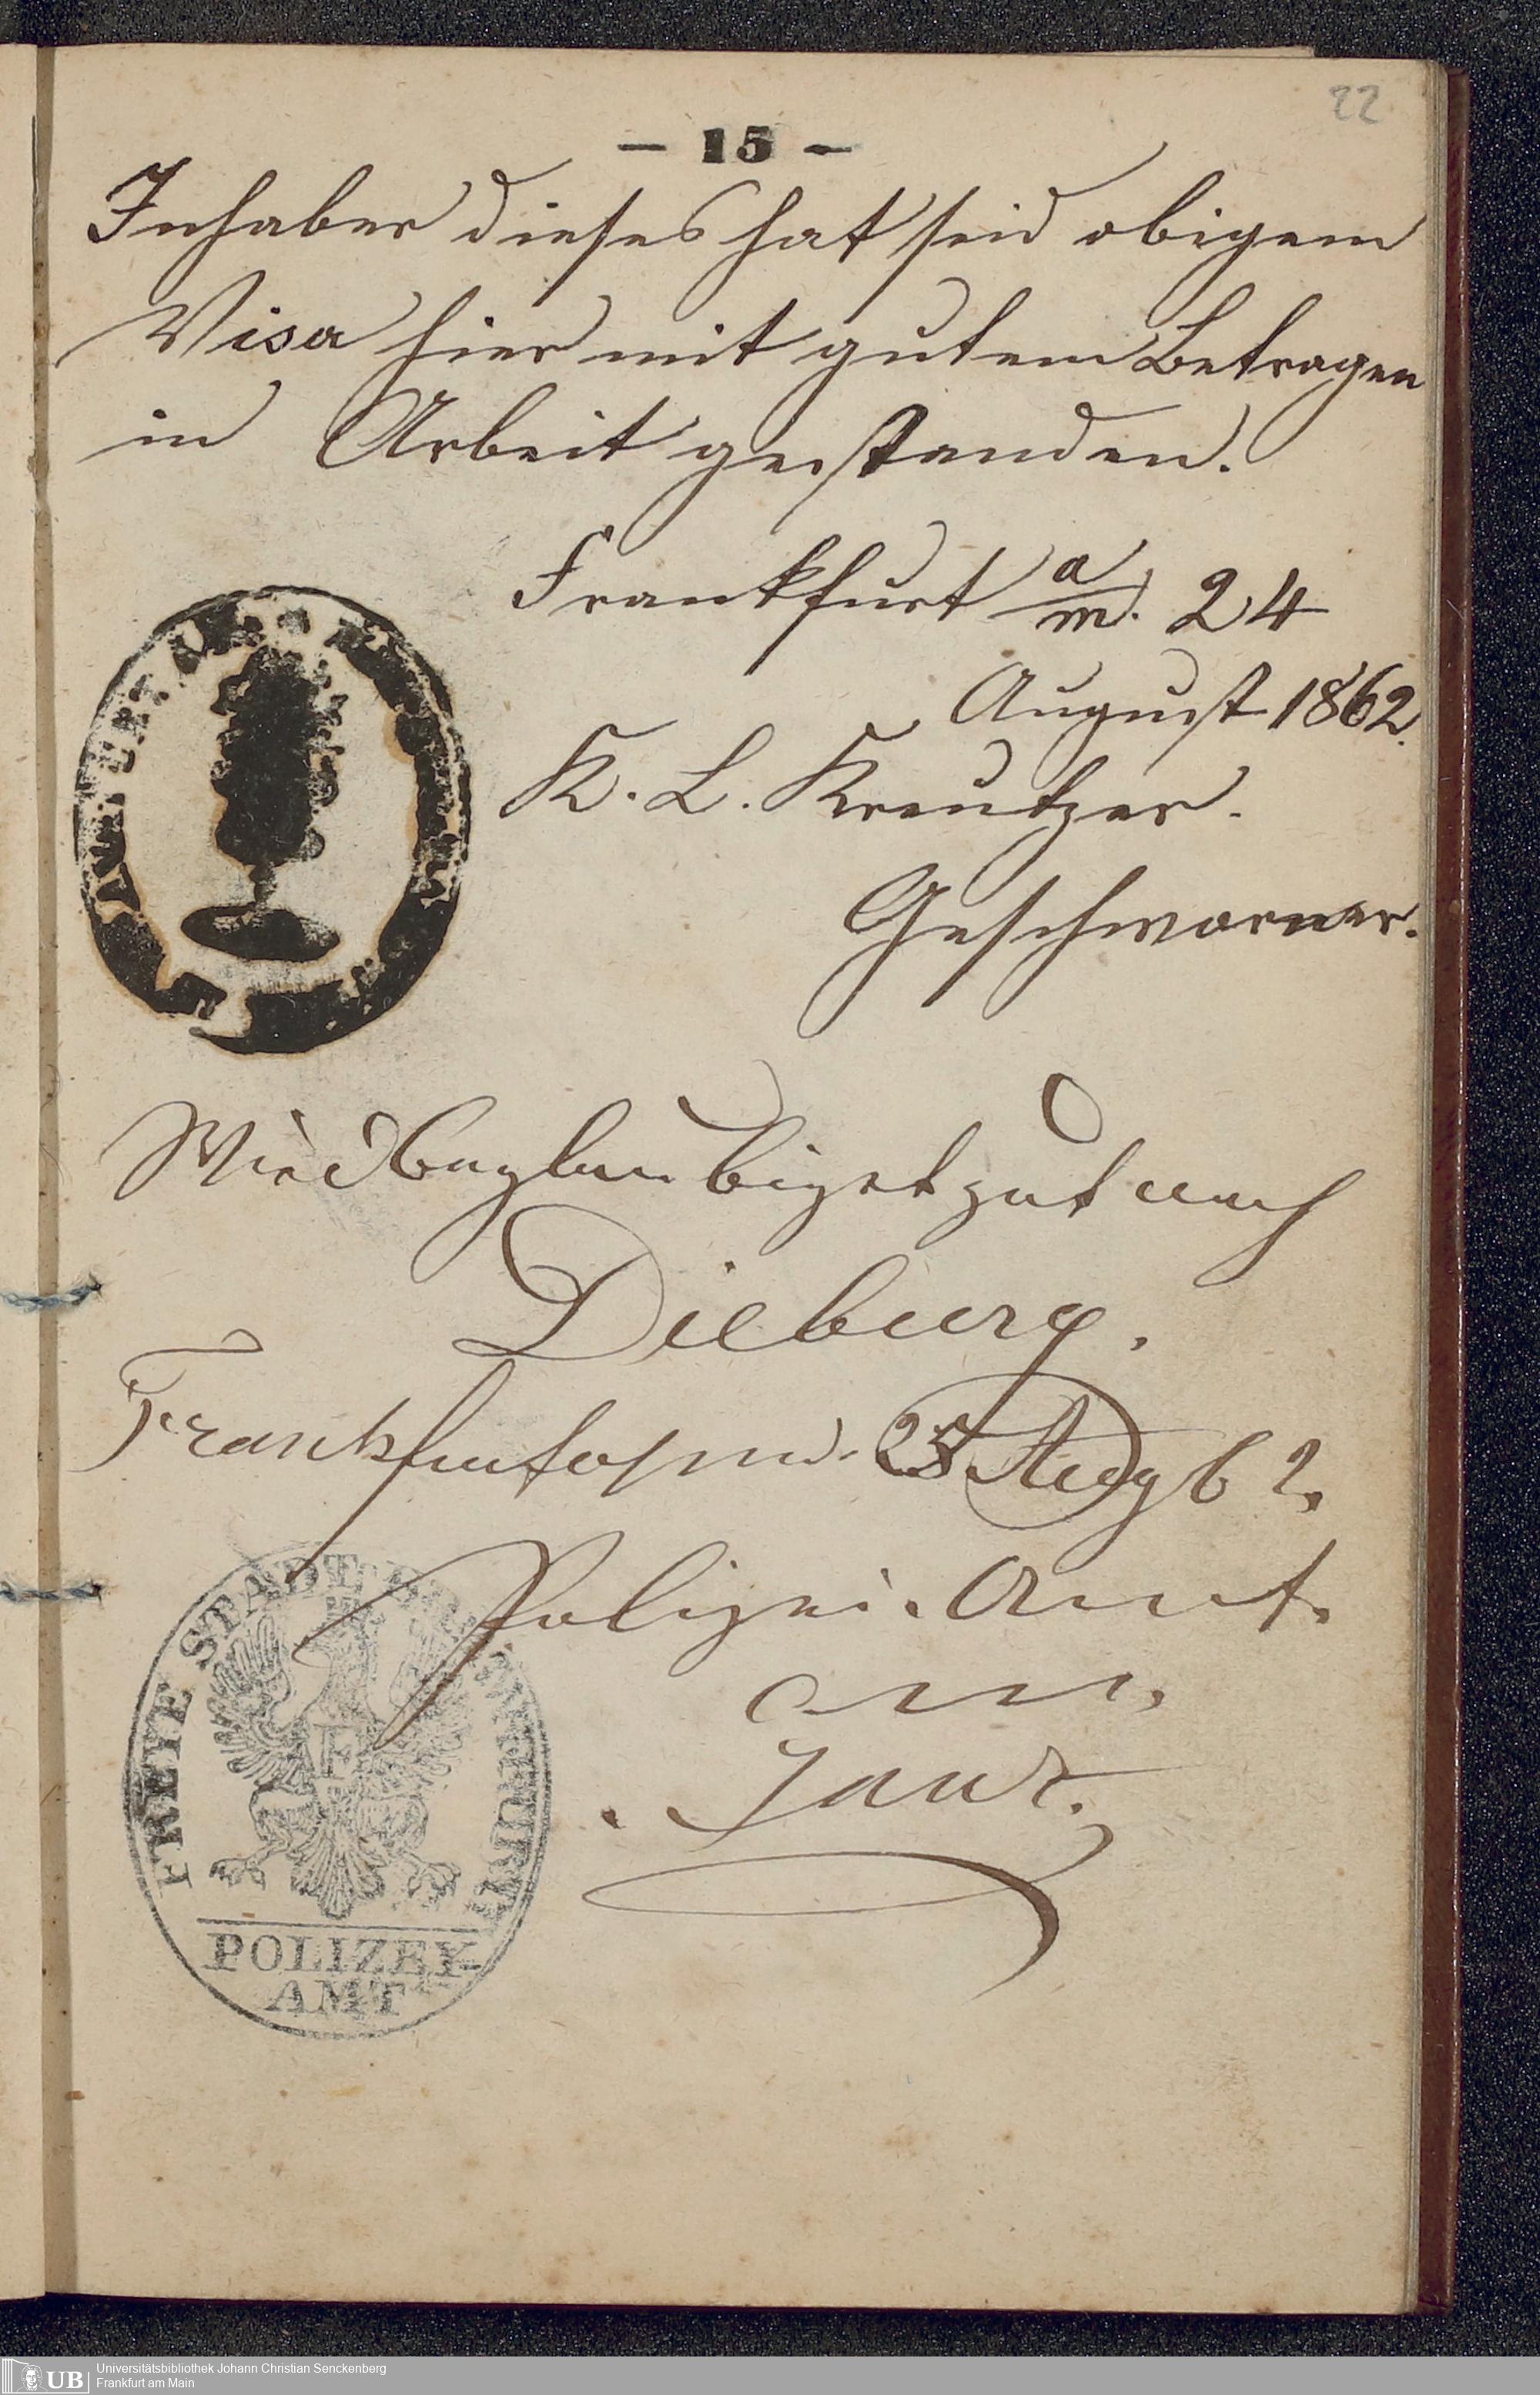 22
— 15 —
Inhaber dieses hat seid obigem
Visa hier mit gutem Betragen
in Arbeit gestanden.
Frankfurt a/m. 24
August 1862.
K. L. Kreutzer.
Geschworner.
Wird beglaubigt gut nach
Dieburg.
Frankfurt a/m d. 25 Aug 62.
Polizei-Amt.
FREYE STADT FRANKFURT
POLIZEY-
AMT
UB
Universitätsbibliothek Johann Christian Senckenberg
Frankfurt am Main